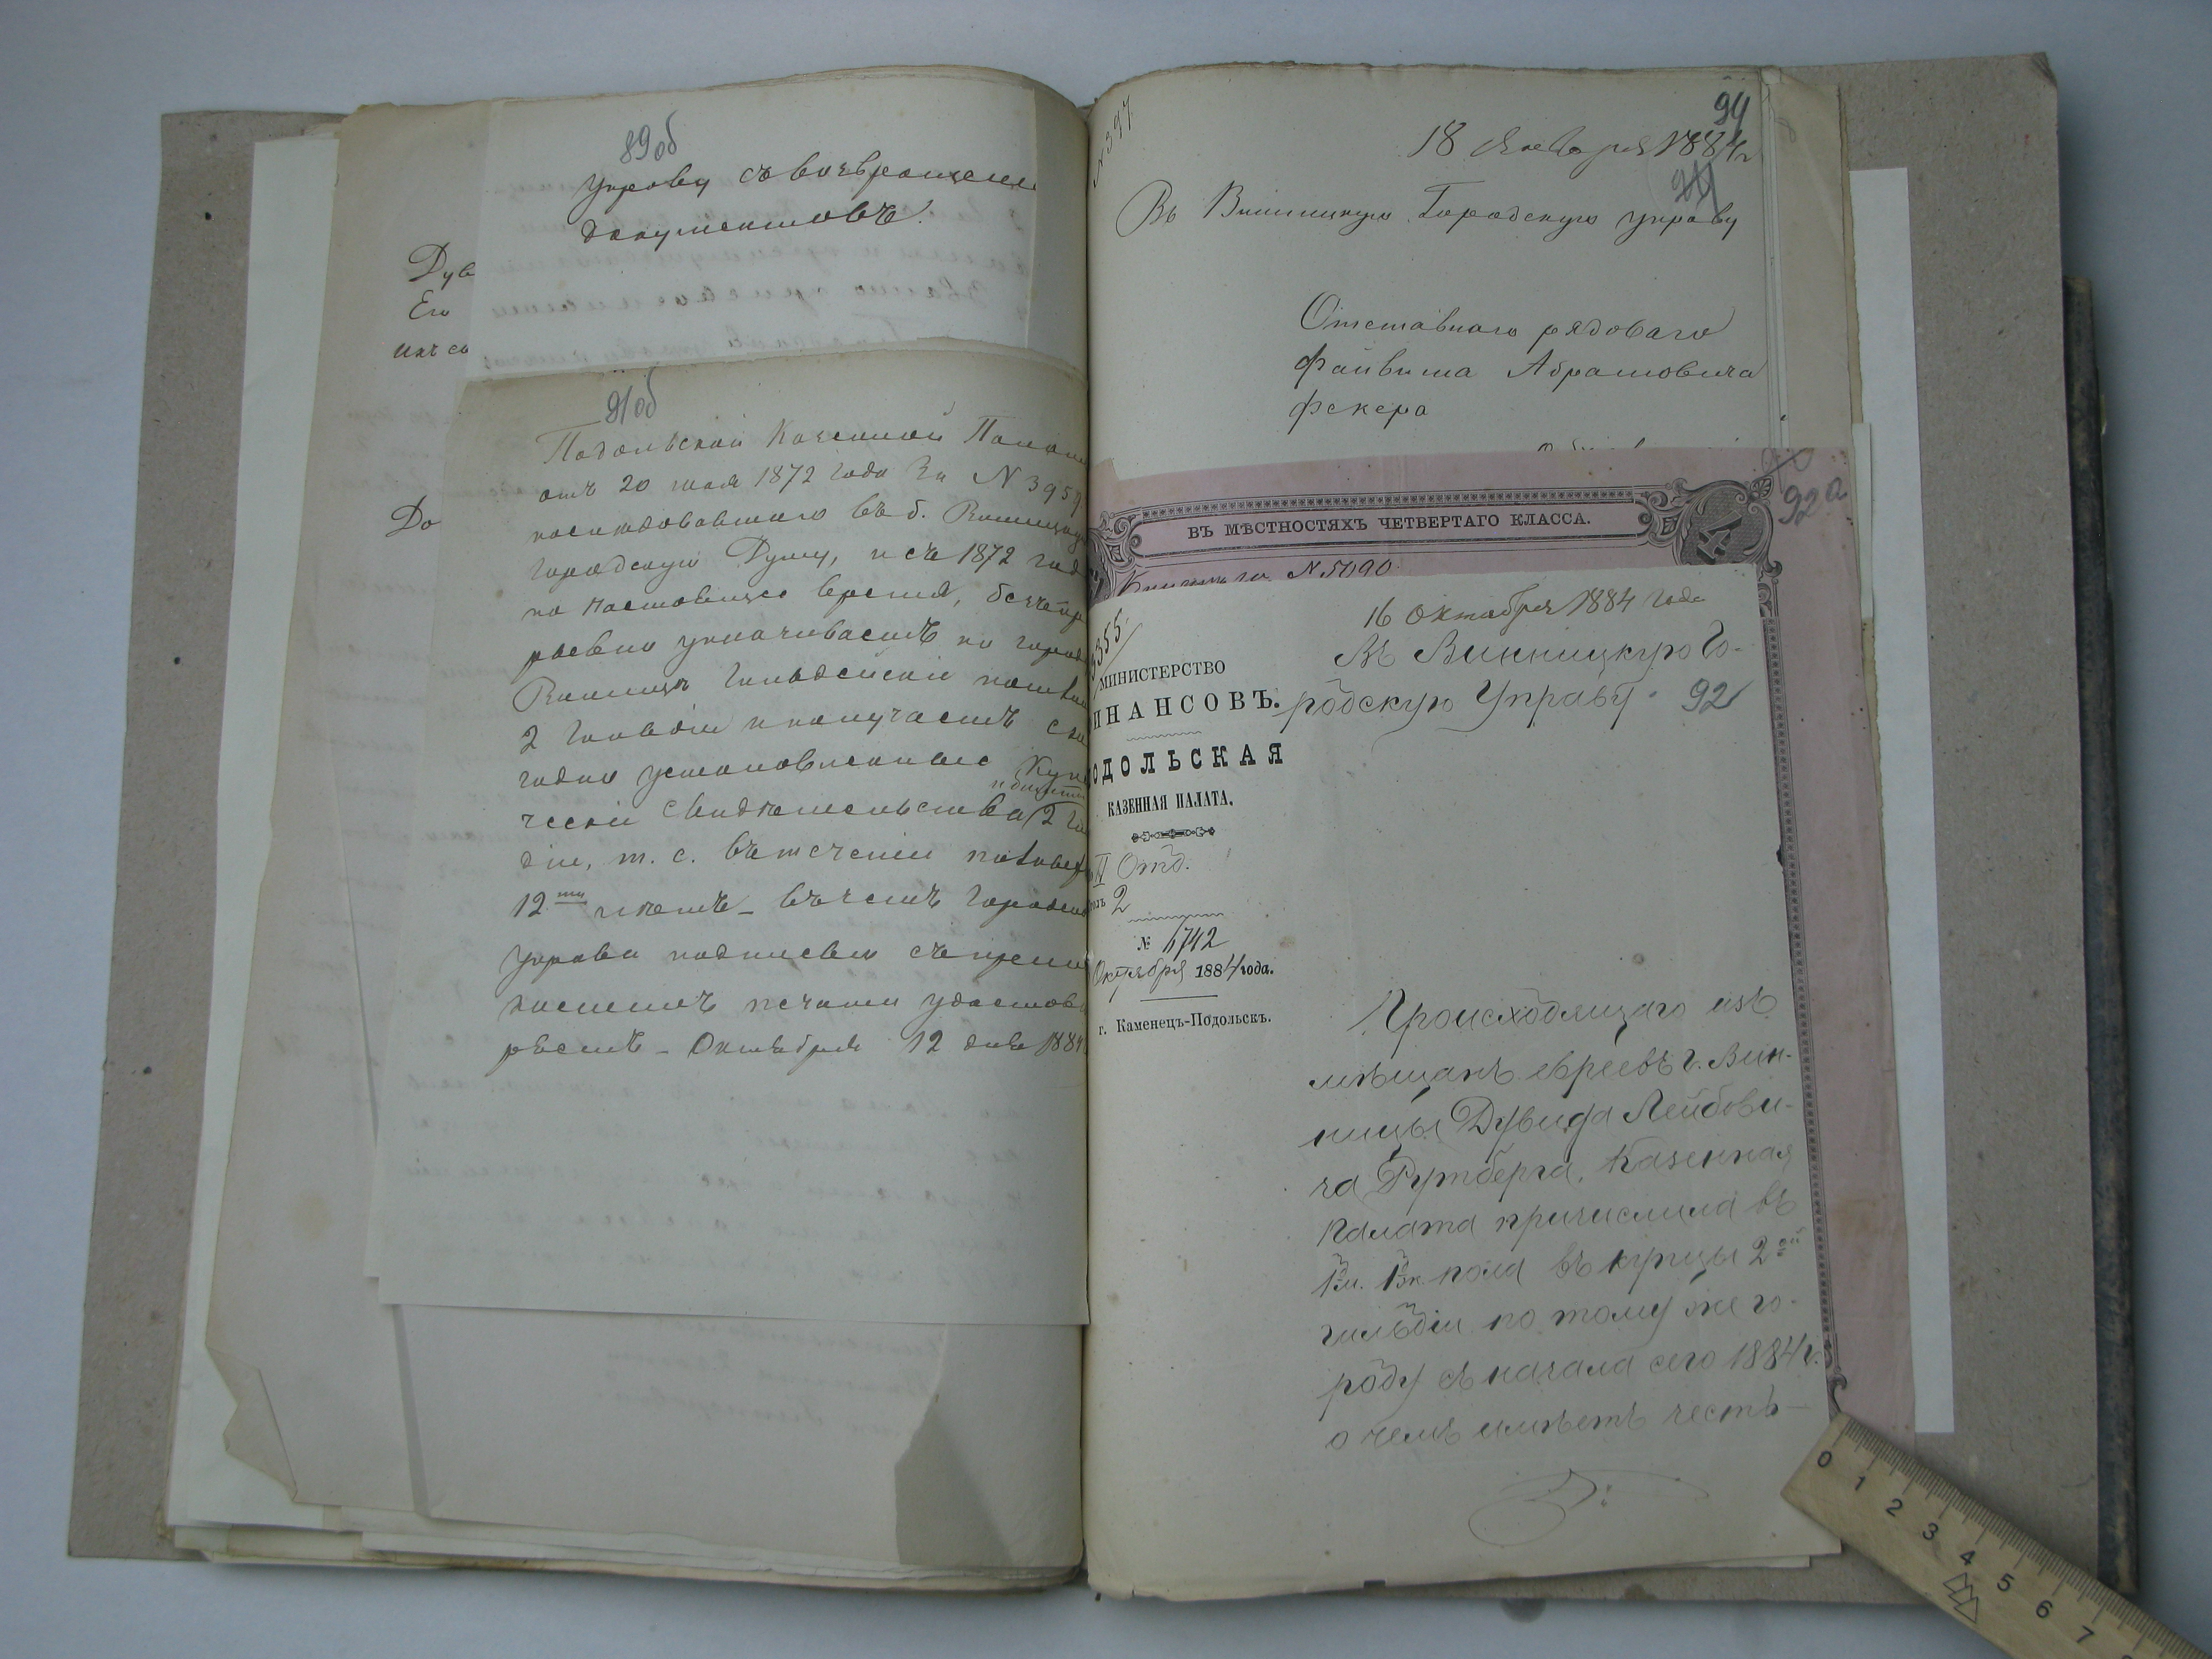 89об
Управу съ возвращеніем
документовъ.
Дув
Его
ихъ со
До
91об
Подольской Казенной Палаты
отъ 20 мая 1872 года за N 3959
последовавшаго въ б. Винницкую
Городскую Думу, и съ 1872 год
по настоящее время,
уплачиваетъ по городу
Винницѣ Гильдейскія
2 Гильдіи и получаетъ
годно установленные Куп
ческія свидѣтельства 2 Гил
діи, т. е. въ теченіи
12ти лѣтъ – въ чемъ Городская
Управа подписью съ прило
женіемъ печати удостовѣ
ряетъ – Октября 12 дня 1884
N 397
94
18 Января 1884 г.
Въ Винницкую Городскую управу
Отставнаго рядоваго
Файвиша Абрамовича
Фекера
ВЪ МѢСТНОСТЯХЪ ЧЕТВЕРТАГО КЛАССА.
4
92а
N. 5090
355
16 Октября 1884 года
Въ Винницкую Го-
родскую Управу.
92
МИНИСТЕРСТВО
ИНАНСОВЪ.
ОДОЛЬСКАЯ
КАЗЕННАЯ ПАЛАТА.
II Отд.
2
№ 6742
Октября 1884 года.
г. Каменецъ-Подольскъ.
Происходящаго изъ
мѣщанъ евреевъ г. Вин-
ницы Дувида Лейбови-
ча Рутберга, Казенная
Палата причислила въ
1 м. 1 ж. пола въ купцы 2ой
гильдіи по тому же го-
роду съ начала сего 1884 г.
о чемъ имѣетъ честь –
0 1 2 3 4 5 6 7